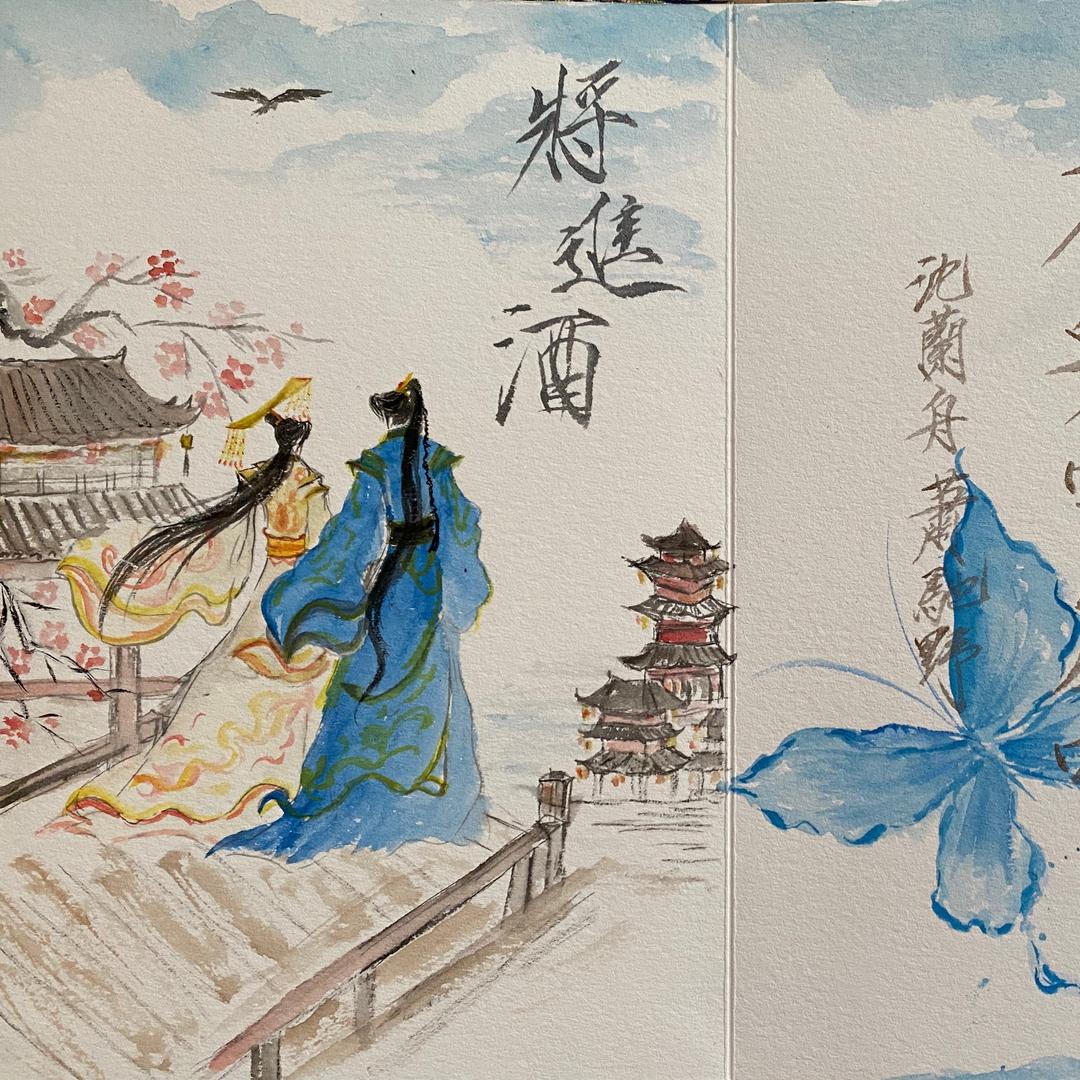 將進酒
沈蘭舟 蕭馳野